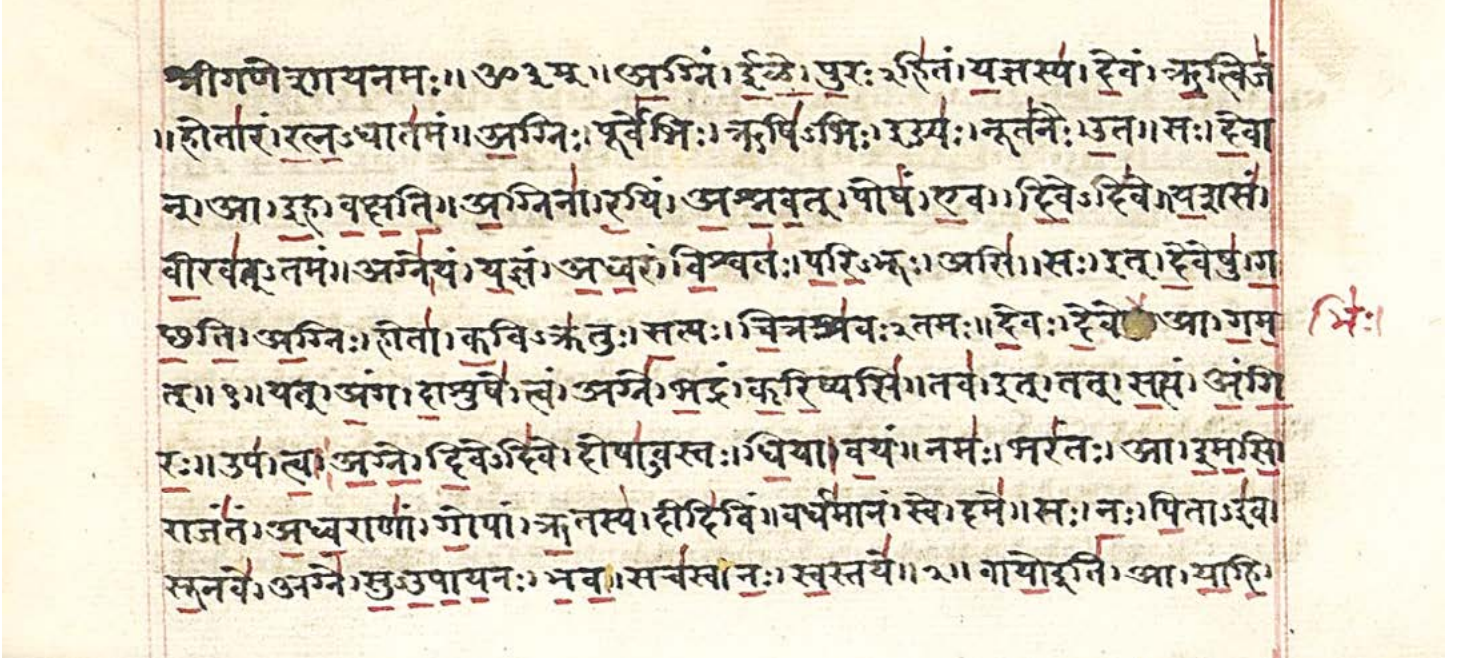 श्रीगणेशायनमः॥ॐ३म्॥अ॒ग्निं। ई॒ळे॒। पु॒रःऽहि॑तं। य॒ज्ञस्य॑। दे॒वं। ऋ॒त्विजं॑
॥होता॑रं। र॒त्न॒ऽधात॑मं॥ अ॒ग्निः। पूर्वे॑भिः। ऋषि॑ऽभिः। ईड्यः॑। नूत॑नैः। उ॒त॥ सः। दे॒वा
न्। आ। इ॒ह। व॒क्ष॒ति॒॥ अ॒ग्निना॑। र॒यिं। अ॒श्न॒व॒त्। पोषं॑। ए॒व। दि॒वेऽदि॑वे। य॒शसं॑।
वी॒रव॑त्ऽतमं॥ अग्ने॑। यं। य॒ज्ञं। अ॒ध्व॒रं। वि॒श्वतः॑। प॒रि॒ऽभूः। असि॑॥ सः। इत्। दे॒वेषु॑। ग॒
च्छ॒ति॒। अ॒ग्निः। होता॑। क॒विऽक्र॑तुः। स॒त्यः। चि॒त्रश्र॑वःऽतमः॥ दे॒वः। दे॒वे आ। ग॒म॒
भिः॑।
त्॥१॥ यत्। अं॒ग। दा॒शुषे॑। त्वं। अग्ने॑। भ॒द्रं। क॒रि॒ष्यसि॑॥ तव॑। इत्। तत्। स॒त्यं। अं॒गि॒
रः॒॥ उप॑। त्वा॒। अ॒ग्ने॒। दि॒वेऽदि॑वे। दोषा॑ऽवस्तः। धि॒या। व॒यं॥ नमः॑। भरं॑तः। आ। इ॒म॒सि॒।
राजं॑तं। अ॒ध्व॒राणां॑। गो॒पां। ऋ॒तस्य॑। दीदि॑विं॥ वर्ध॑मानं। स्वे। दमे॑॥ सः। नः॒। पि॒ताऽइ॑व।
सू॒नवे॑। अग्ने॑। सु॒ऽउ॒पा॒य॒नः। भ॒व॒॥ सच॑स्व। नः॒। स्व॒स्तये॑॥२॥ वायो॒इति॑। आ। या॒हि॒।